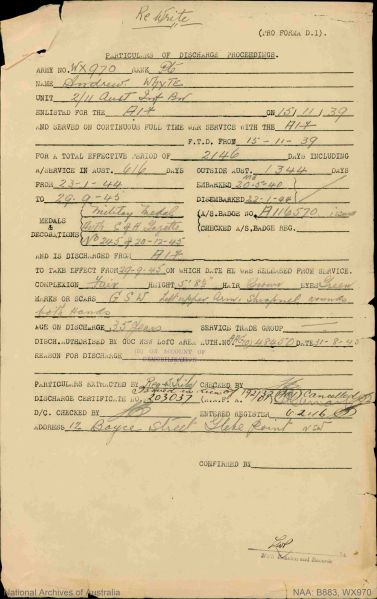 Re Write
(PRO FORMA D.1).
PARTICULARS OF DISCHARGE PROCEEDINGS.
ARMY NO. WX970 RANK Pte
NAME Andrew WHYTE
UNIT 2/11 Aust Inf Bn
ENLISTED FOR THE A.I.F ON 15/11/39
AND SERVED ON CONTINUOUS FULL TIME WAR SERVICE WITH THE A.I.F
F.T.D. FROM 15-11-39
FOR A TOTAL EFFECTIVE PERIOD OF 2146 DAYS INCLUDING
A/SERVICE IN AUST. 616 DAYS OUTSIDE AUST. 1344 DAYS
FROM 23-1-44 EMBARKED 20-5-40
TO 29-9-45 DISEMBARKED 22-1-44
MEDALS & DECORATIONS Military Medal A/S.BADGE NO. A116570 issued
Auth C of A Gazette CHECKED A/S BADGE REG.
No 245 of 20-12-45
AND IS DISCHARGED FROM A.I.F
TO TAKE EFFECT FROM 29-9-45 ON WHICH DATE HE WAS RELEASED FROM SERVICE.
COMPLEXION Fair HEIGHT 5' 8½" HAIR Brown EYES Green
MARKS OR SCARS G S W Left upper Arm Shrapnel wounds
both hands
AGE ON DISCHARGE 35 Years SERVICE TRADE GROUP
DISCH. AUTHORISED BY GOC NSW LofC AREA AUTH.NO. 48450 DATE 31-8-45
REASON FOR DISCHARGE ON ACCOUNT OF DEMOBILISATION
PARTICULARS EXTRACTED BY CHECKED BY
DISCHARGE CERTIFICATE NO. 203037 Issued in lieu of Cancelled
D/C. CHECKED BY ENTERED REGISTER 6-2-46
ADDRESS 12 Boyce Street Glebe Point NSW
CONFIRMED BY
National Archives of Australia NAA: B883, WX970